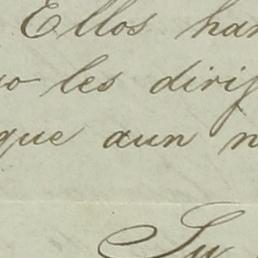 Ellos han
o les dirij
que aun n
Su